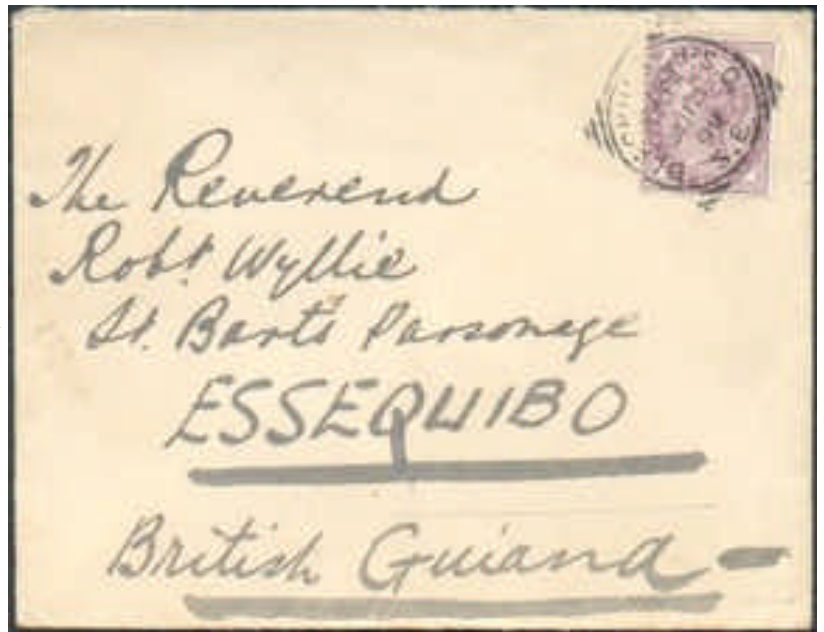 The Reverend
Robt. Wyllie
St. Bart's Parsonage
ESSEQUIBO
British Guiana